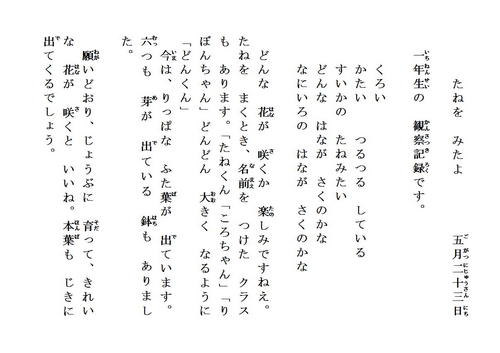 たねを　みたよ　　　五月二十三日
一年生の　観察記録です。
くろい
かたい　つるつる　している
すいかの　たねみたい
どんな　はなが　さくのかな
なにいろの　はなが　さくのかな
どんな　花が　咲くか　楽しみですねえ。
たねを　まくとき、名前を　つけた　クラス
も　あります。「たねくん」「ころちゃん」「り
ぼんちゃん」どんどん　大きく　なるように
「どんくん」
今は、りっぱな　ふた葉が　出ています。
六つも　芽が　出ている　鉢も　ありまし
た。
願いどおり、じょうぶに　育って、きれい
な　花が　咲くと　いいね。本葉も　じきに
出てくるでしょう。